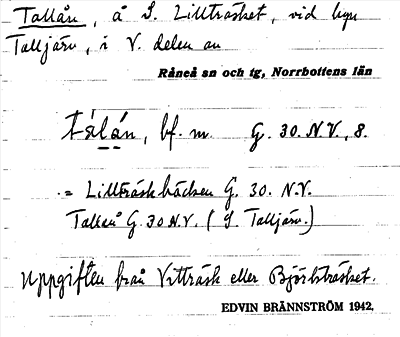 Tallån, å S. Lillträsket, vid byn
Talljärv, i V. delen av
Råneå sn och tg, Norrbottens län
bf. m G. 30. N.V., 8.
= Lillträskbäcken G. 30. N.V.
Tallån G 30 N.V. (S Talljärv.)
Uppgiften från Vitträsk eller Björkträsket.
EDVIN BRÄNNSTRÖM 1942.